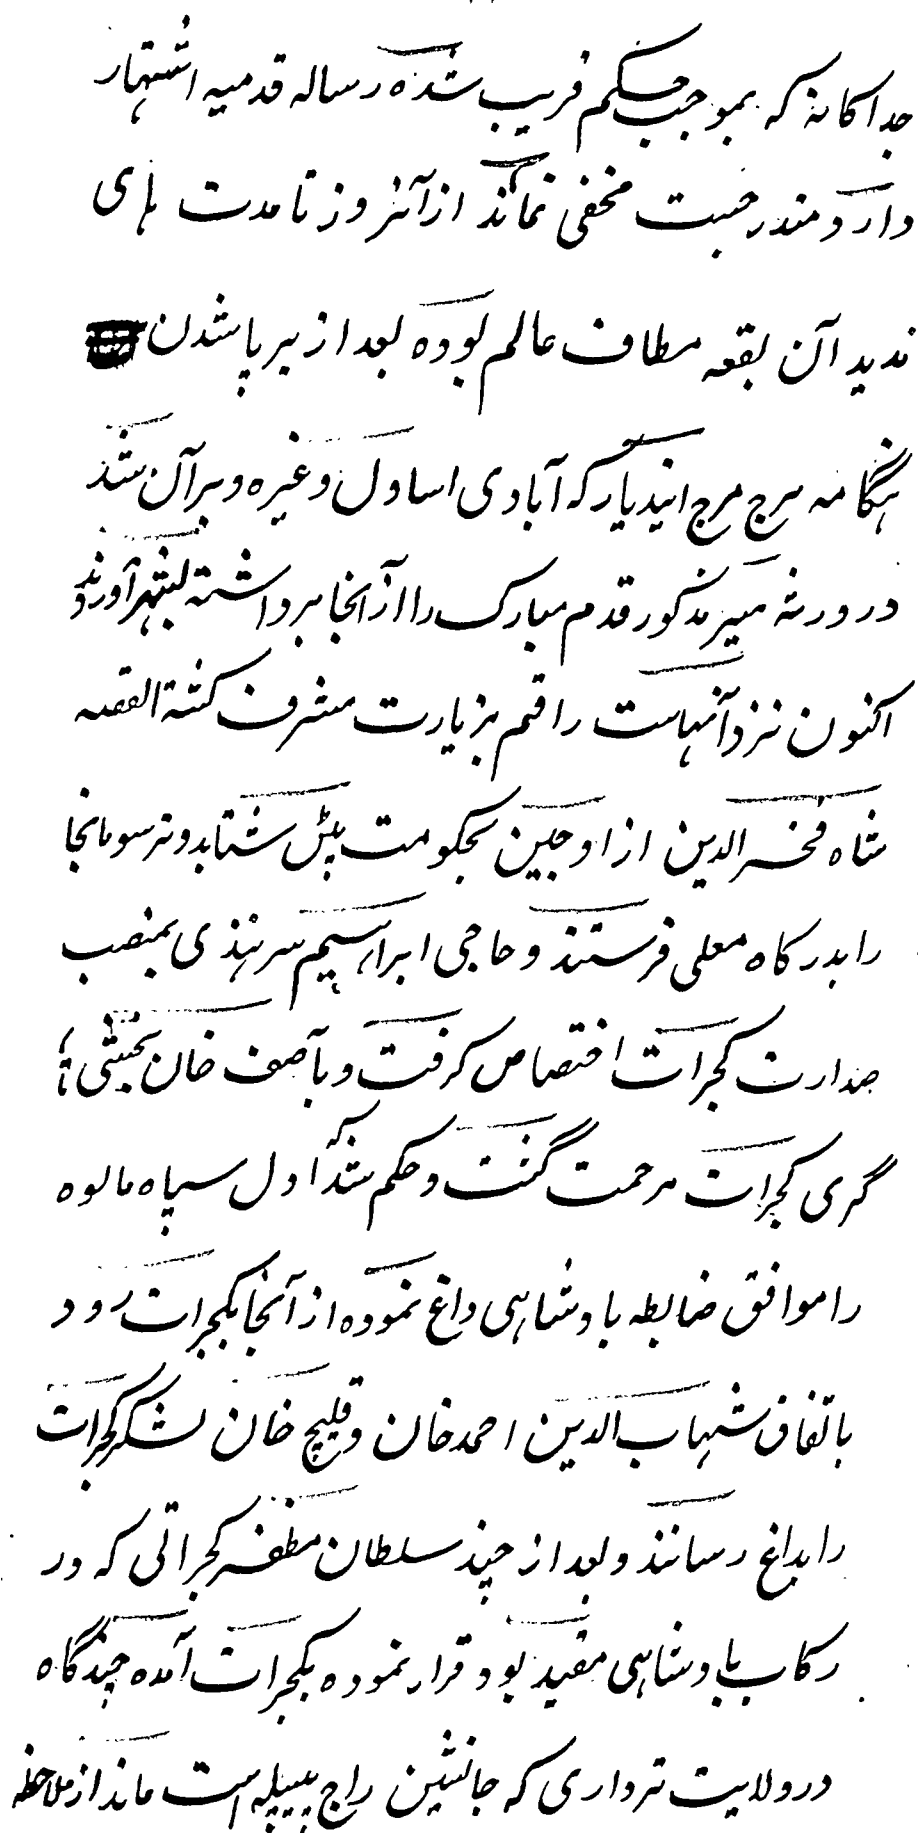 جداکانه که بموجب حکم قریب شده رساله قدمیه اشتهار
دارد و مندرجست مخفی نماند از آنروز تا مدت های
ندید آن بقعه مطاف عالم بوده بعد از برپا شدن
هنگامه هرج مرج ایندیار که آبادی اساول وغیره ویران شد
در ورثه میر مذکور قدم مبارک را از آنجا برداشته بشهر آوردند
اکنون نزد آنهاست راقم بزیارت مشرف کشته القصه
شاه فخرالدین از اوجین بحکومت پتن شتابد و ترسو مانجا
را بدرکاه معلی فرستند و حاجی ابراهیم سرهندی بمنصب
صدارت کجرات اختصاص کرفت و بآصف خان بخشی
گری کجرات مرحمت گشت و حکم شد که اول سپاه مالوه
را موافق ضابطه بادشاهی داغ نموده از آنجا بکجرات رود
باتفاق شهاب الدین احمد خان و قلیچ خان لشکر کجرات
را بداغ رسانند و بعد از چند سلطان مظفر کجراتی که در
رکاب بادشاهی مقید بود قرار نموده بکجرات آمده چندگاه
در ولایت ترواری که جانشین راج پیپله است ماند از ملاحظه